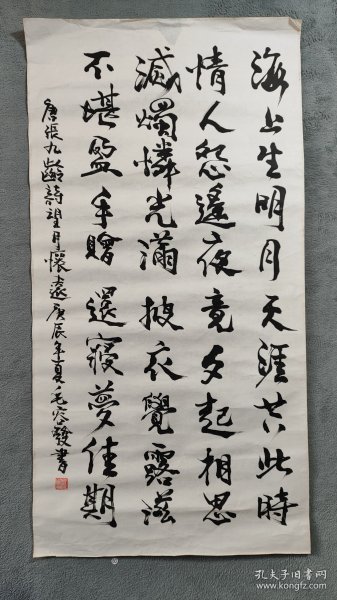 海上生明月天涯共此時
情人怨遙夜竟夕起相思
滅燭憐光滿披衣覺露滋
不堪盈手贈還寢夢佳期
唐張九齡詩望月懷遠庚辰年夏毛容發書
孔夫子旧书网